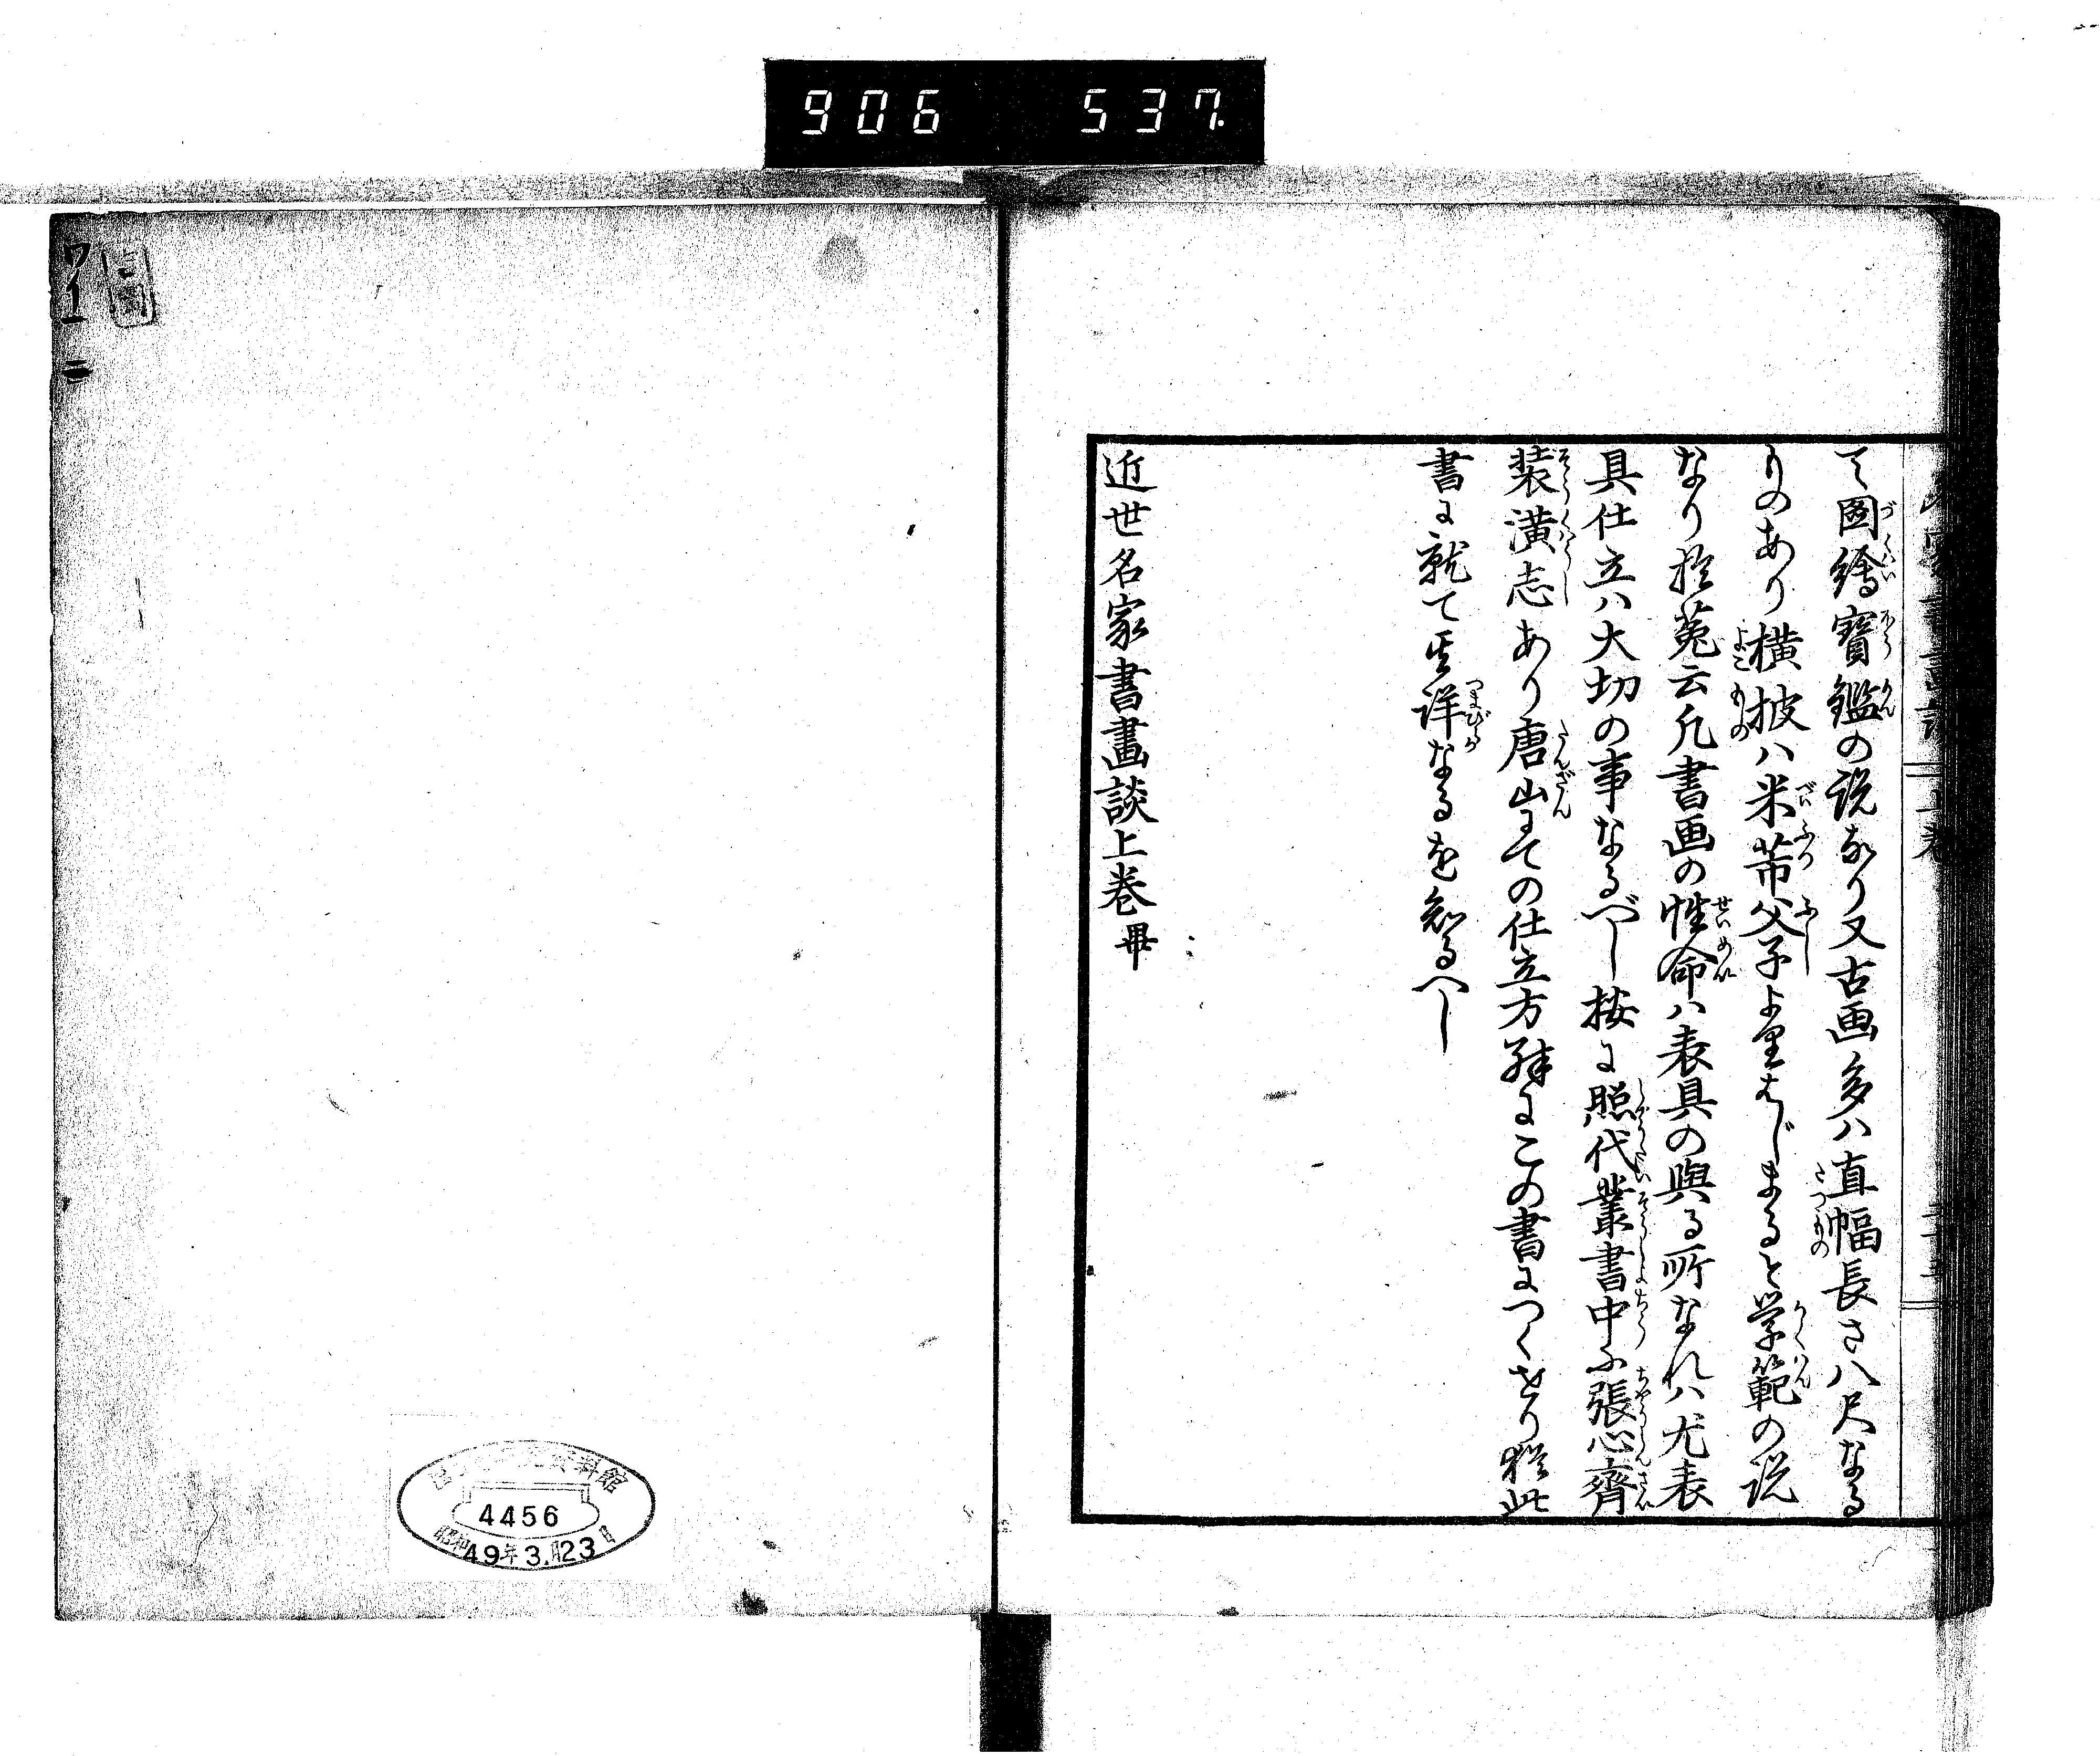 906 537
て圖繪寶鑑の説なり又古画多ハ直幅長さ八尺なる
ものあり横披ハ米芾父子よりはじまると学範の説
なり於菟云凡書画の性命ハ表具の與る所なれハ尤表
具仕立ハ大切の事なるべし按に照代叢書中に張心齊
装潢志あり唐山にての仕立方詳にこの書につくせり猶此
書に就て其詳なるを知るへし
近世名家書畫談上巻畢
ワ1
二
資料館
4456
昭和49年3月23日